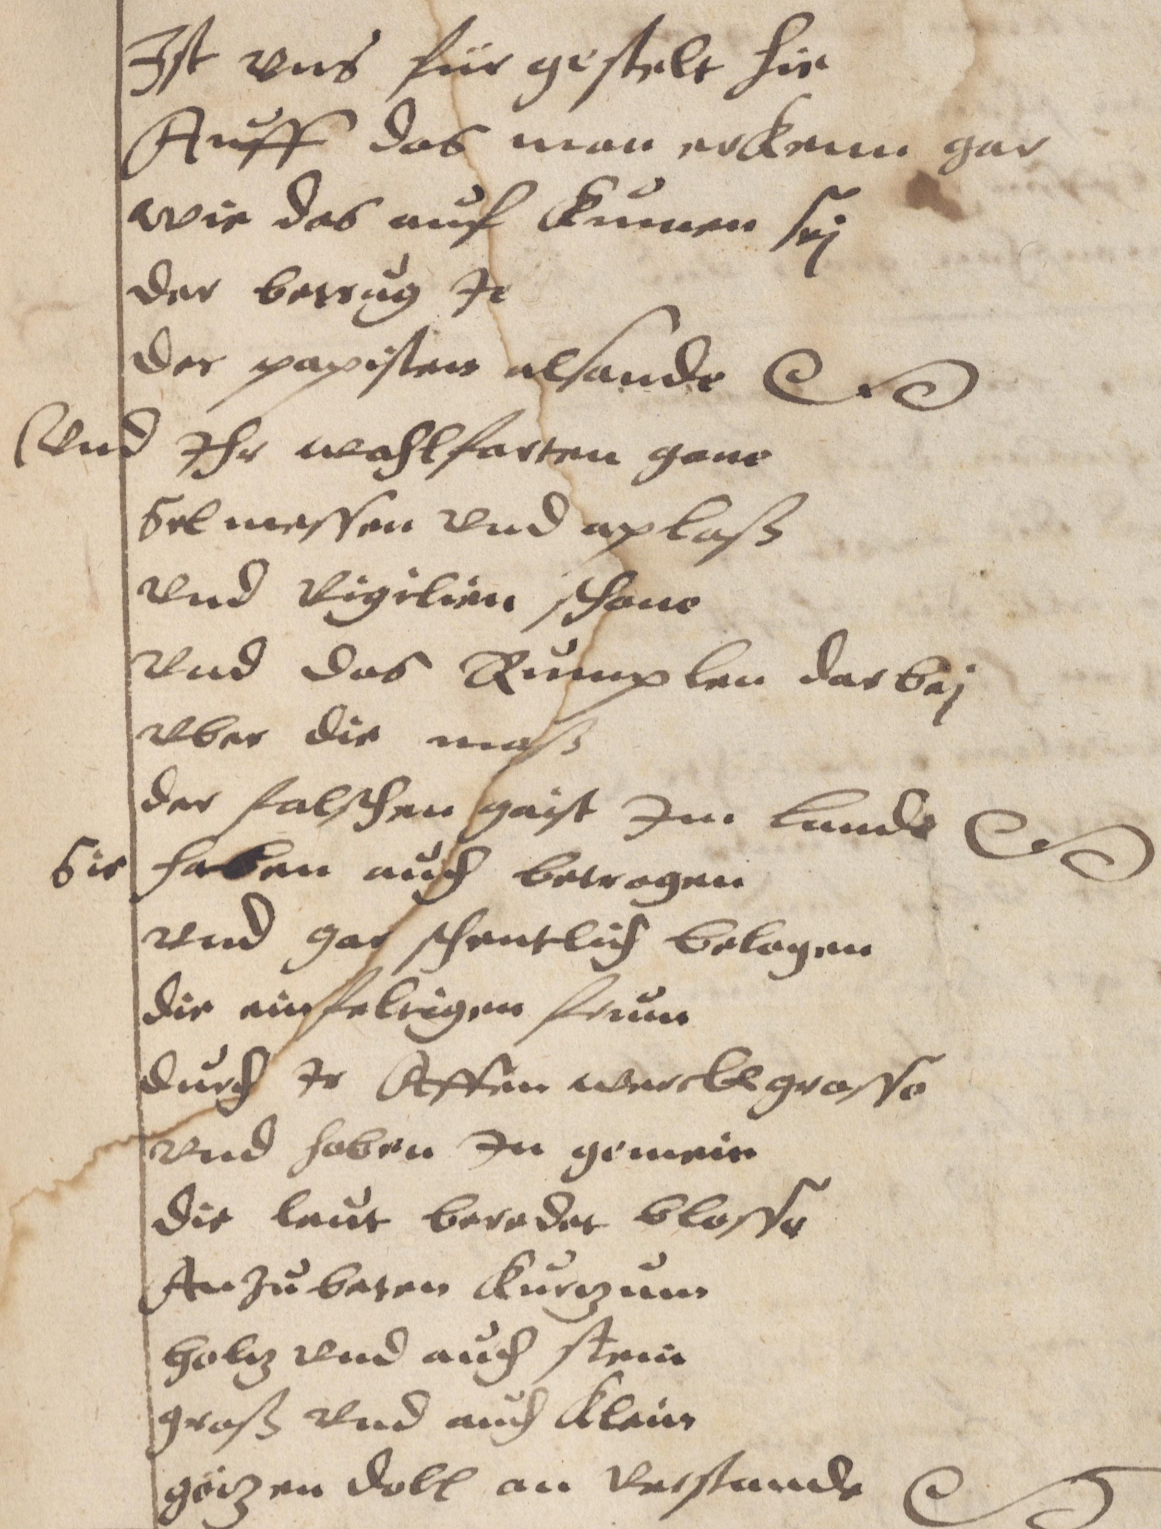 Ist vns für gestelt hie
Auff das man erkenn gar
wie das auf kumen sej
der betrug Je
der papisten alsande
Vnd Ihr wahlfarten gane
Selmessen vnd aplaß
vnd vigilien schone
vnd das Rumplen darbej
vber die maß
der falschen gaist Im lande
Sie haben auch betrogen
vnd gar schentlich belogen
die einfeltigen frum
durch Ir Affen werckh grosse
vnd haben In gemein
die leut beredet blosse
Anzubeten kurzum
holtz vnd auch stein
groß vnd auch klein
götzen doll an verstande